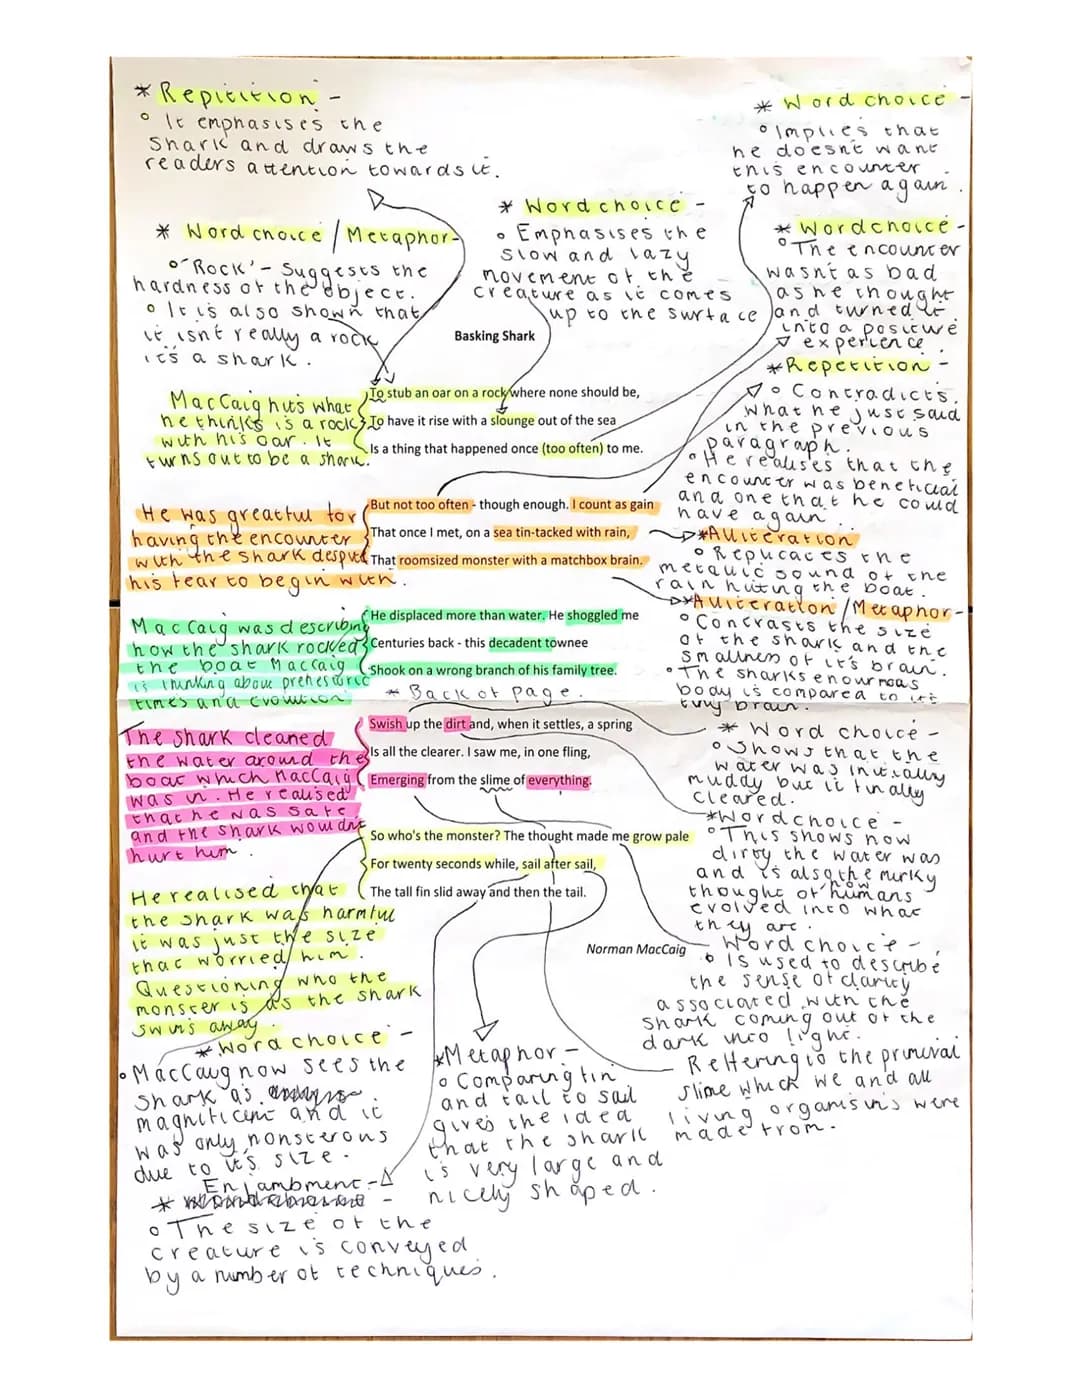 * Repitition -
° It emphasises the
shark and draws the
readers attention towards it.
* Word choice / Metaphor-
° 'Rock' - Suggests the
hardness of the object.
° It is also shown that
it isnt really a rock
it's a shark.
* Word choice -
° Emphasises the
slow and lazy
movement of the
creature as it comes
up to the surface
* Word choice -
° Implies that
he doesnt want
this encounter
to happen again.
* Word choice -
° The encounter
wasnt as bad
as he thought
and turned it
into a positive
experience.
Basking Shark
To stub an oar on a rock where none should be,
To have it rise with a slounge out of the sea
Is a thing that happened once (too often) to me.
MacCaig hits what
he thinks is a rock
with his oar. It
turns out to be a shark.
* Repetition -
° Contradicts
what he just said
in the previous
paragraph.
° He realises that the
encounter was beneficial
and one that he could
have again
But not too often - though enough. I count as gain
That once I met, on a sea tin-tacked with rain,
That roomsized monster with a matchbox brain.
He was greatful for
having the encounter
with the shark despite
his fear to begin with.
* Alliteration
° Replicates the
metallic sound of the
rain hitting the boat.
* Alliteration / Metaphor-
° Contrasts the size
of the shark and the
smallness of it's brain.
° The sharks enourmous
body is compared to it's
tiny brain.
He displaced more than water. He shoggled me
Centuries back - this decadent townee
Shook on a wrong branch of his family tree.
* Back of page.
MacCaig was describing
how the shark rocked
the boat MacCaig
is thinking about prehestoric
times and evolution
Swish up the dirt and, when it settles, a spring
Is all the clearer. I saw me, in one fling,
Emerging from the slime of everything.
The shark cleaned
the water around the
boat which MacCaig
was in. He realised
that he was safe
and the shark wouldnt
hurt him.
* Word choice -
° Shows that the
water was initially
muddy but it finally
cleared.
* Word choice -
° This shows how
dirty the water was
and is also the murky
thought of how humans
evolved into what
they are.
So who's the monster? The thought made me grow pale
For twenty seconds while, sail after sail,
The tall fin slid away and then the tail.
Norman MacCaig
He realised that
the shark was harmful
it was just the size
that worried him.
Questioning who the
monster is as the shark
swims away.
Word choice -
° Is used to describe
the sense of clarity
associated with the
shark coming out of the
dark into light.
Reffering to the primeval
slime which we and all
living organism's were
made from.
* Word choice -
° MacCaig now sees the
shark as
magnificent and it
was only monsterous
due to it's size.
* Metaphor -
° Comparing fin
and tail to sail
gives the idea
that the shark
is very large and
nicely shaped.
Enjambment -
*
° The size of the
creature is conveyed
by a number of techniques.